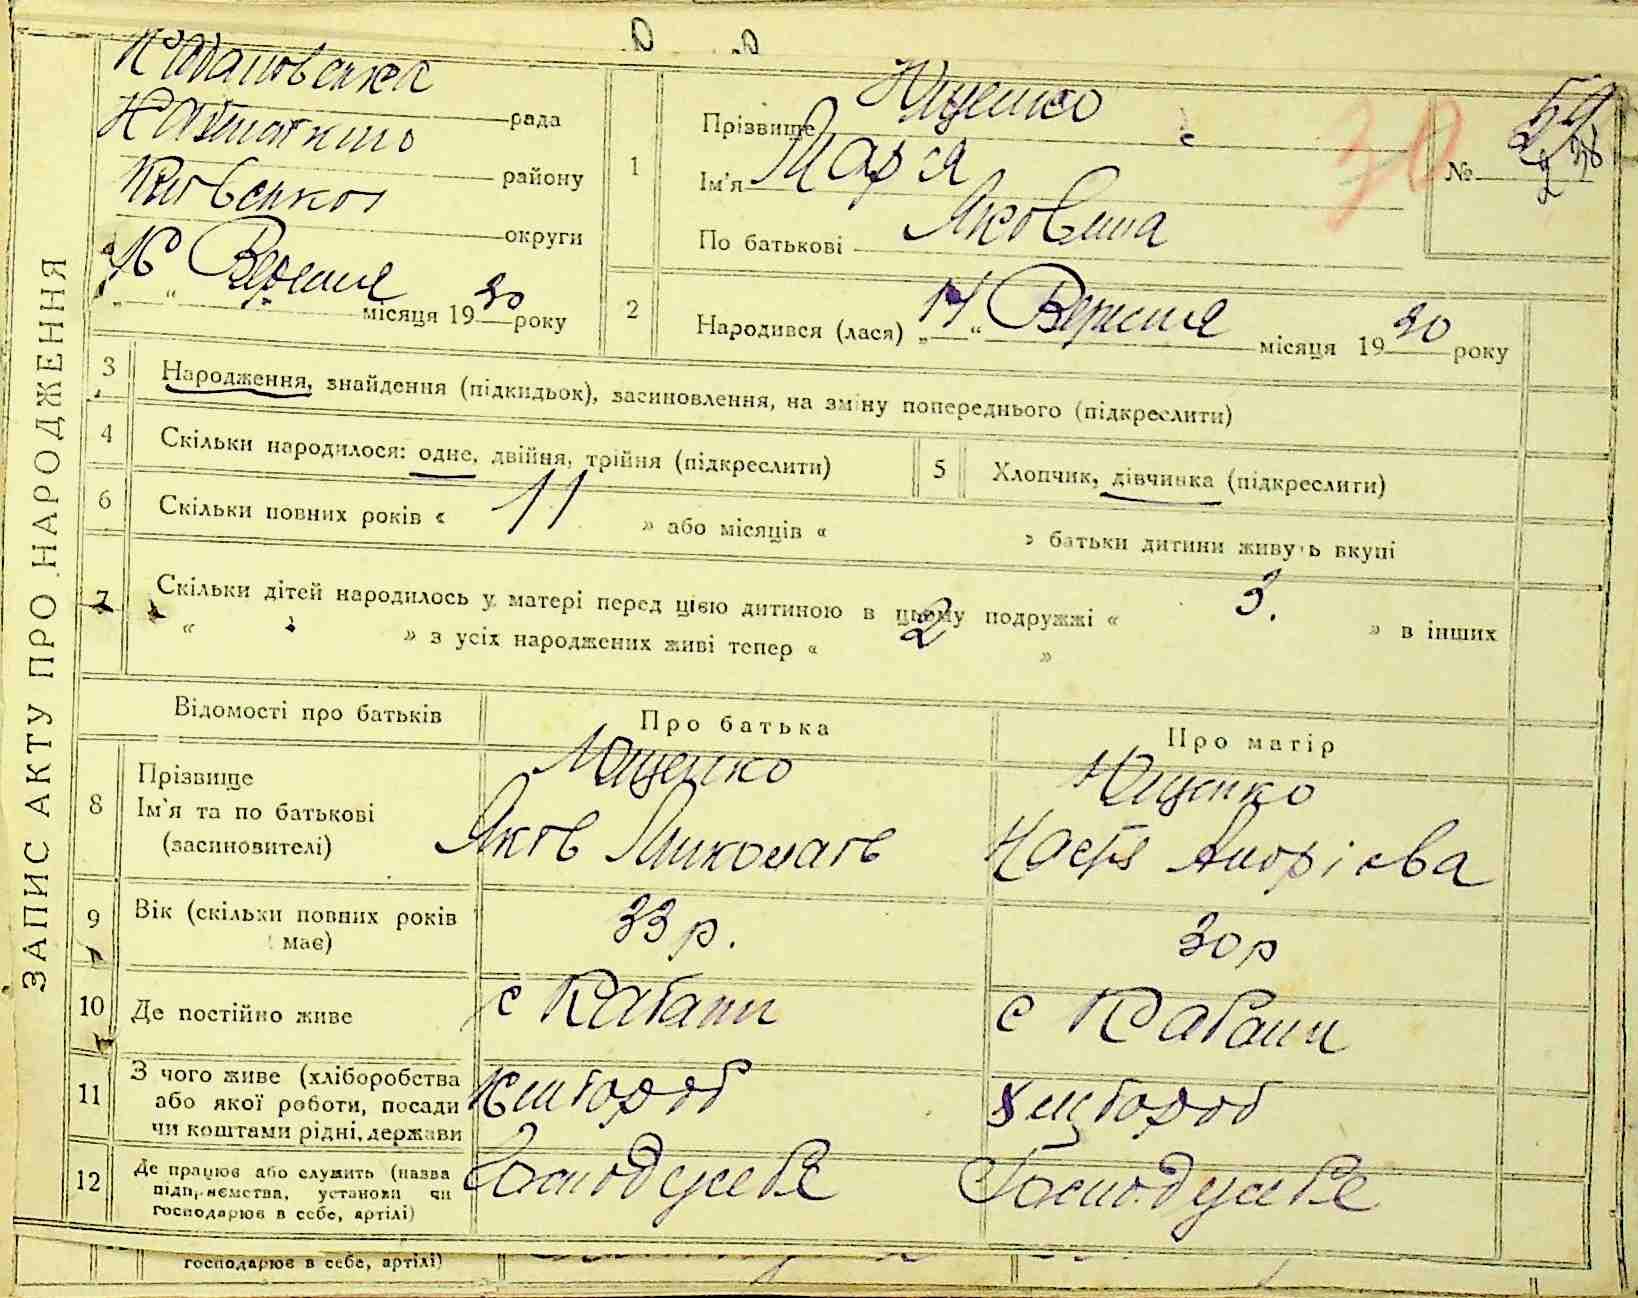 ЗАПИС АКТУ ПРО НАРОДЖЕННЯ
рада
району
округи
„16“ Вересня місяця 1930 року
1
Прізвище Ющенко
Ім'я Марія
По батькові Яковина
30
№ 59
2
Народився (лася) „14“ Вересня місяця 1930 року
3 Народження, знайдення (підкидьок), засиновлення, на зміну попереднього (підкреслити)
4 Скільки народилося: одне, двійня, трійня (підкреслити)
5 Хлопчик, дівчинка (підкреслити)
6 Скільки повних років « 11 » або місяців « » батьки дитини живуть вкупі
7 Скільки дітей народилось у матері перед цією дитиною в цьому подружжі « 3. » в інших
« » з усіх народжених живі тепер « 2 »
Відомості про батьків
Про батька
Про матір
8 Прізвище
Ім'я та по батькові
(засиновителі)
Ющенко
Яків Миколаїв
Ющенко
Настя Андрієва
9 Вік (скільки повних років має)
33 р.
30 р
10 Де постійно живе
с Кабани
с Кабани
11 З чого живе (хліборобства
або якої роботи, посади
чи коштами рідні, держави
хлібороб
хлібороб
12 Де працює або служить (назва
підприємства, установи чи
господарює в себе, артілі)
Господ у себе
Господ у себе
господарює в себе, артілі)